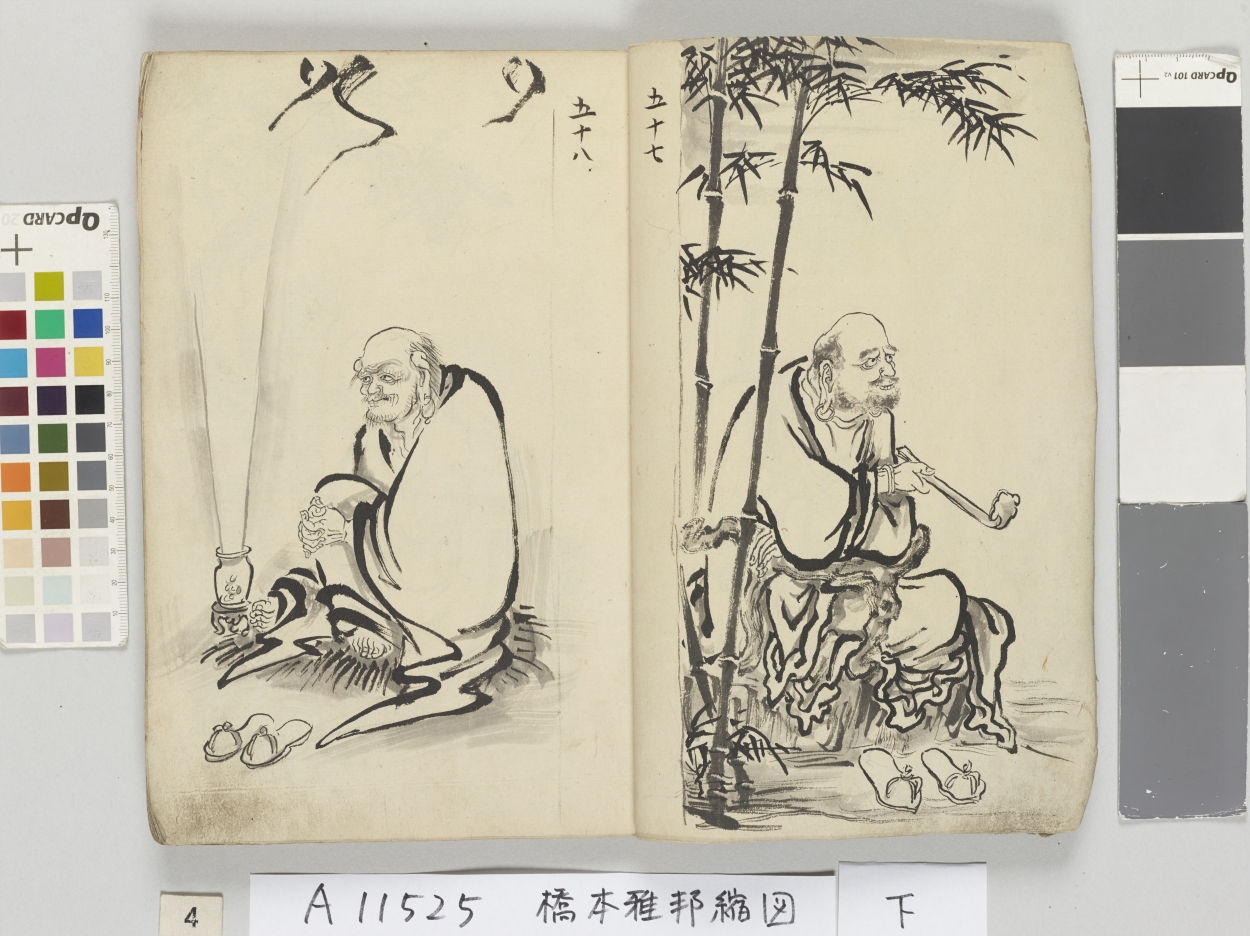 五十七
五十八
QPCARD 101 v2
QPCARD 20
4
A 11525 橋本雅邦縮図 下